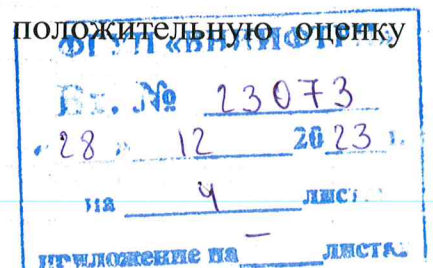 положительную оценку
ФГУП «ВНИИФТРИ»
Вх. № 23073
« 28 » 12 2023 г.
на 4 листа
приложение на – листах